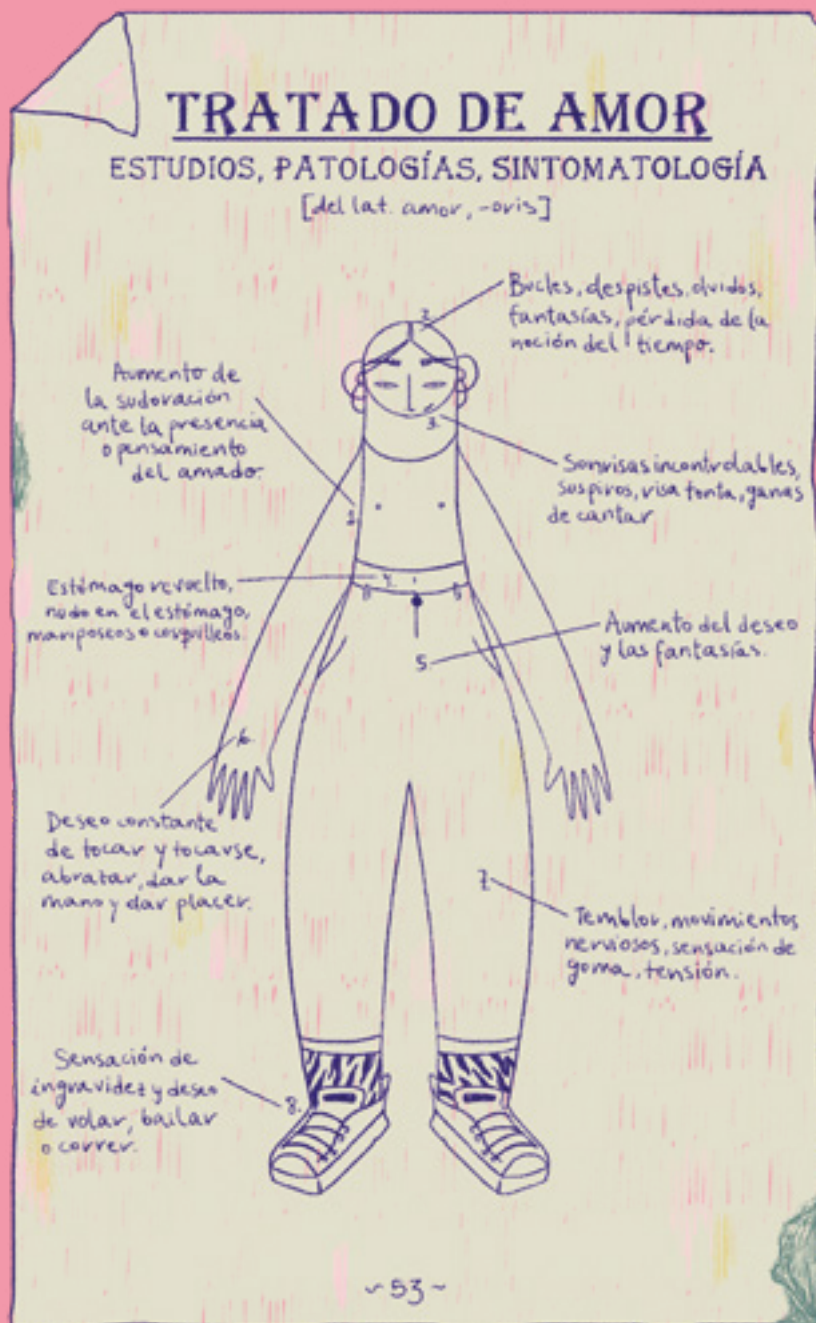 TRATADO DE AMOR
ESTUDIOS, PATOLOGÍAS, SINTOMATOLOGÍA
[del lat. amor, -oris]
2.
Bucles, despistes, olvidos,
fantasías, pérdida de la
noción del tiempo.
Aumento de
la sudoración
ante la presencia
o pensamiento
del amado.
1.
3.
Sonrisas incontrolables,
suspiros, risa tonta, ganas
de cantar
Estómago revuelto,
nudo en el estómago,
mariposeos o cosquilleos
4.
5
Aumento del deseo
y las fantasías.
6.
Deseo constante
de tocar y tocarse,
abratar, dar la
mano y dar placer.
7.
Temblor, movimientos
nerviosos, sensación de
goma, tensión.
Sensación de
ingravidez y deseo
de volar, bailar
o correr.
8.
~53~